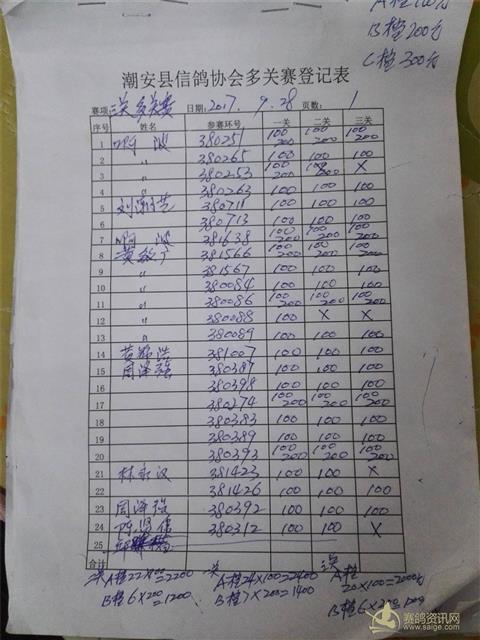 A档100方
B档200方
C档300方
潮安县信鸽协会多关赛登记表
赛项: 三关多关赛 日期: 2017. 9.28 页数: 1
序号 姓名 参赛环号 一关 二关 三关
1 波 380251 100 200 100 200 100 200
2 〃 380265 100 100 100
3 〃 380253 100 200 100 X X
4 〃 380263 100 100 100
5 380711 100 100 100
6 380713 100 100 100
7 波 381638 100 200 100 200 100 200
8 381566 100 200 100 200 100 200
9 〃 381567 100 100 100
10 〃 380084 100 100 100
11 〃 380086 100 200 100 200 100 200
12 〃 380088 100 X X
13 〃 380089 100 100 100
14 381007 100 100 100
15 周泽强 380387 100 100 100
16 380398 100 100 100
17 380274 100 200 100 200 100 200
18 380383 100 100 100
19 380389 100 100 100
20 380393 100 200 100 200 100 200
21 林 汉 381423 100 100 X
22 381426 100 100 100
23 周泽强 380392 100 100 100
24 380312 100 100 X
25
合计
A档22X100=2200 A档24X100=2400 三关 A档
20X100=2000
B档6X200=1200 B档7X200=1400 B档6X200=1200
赛鸽资讯网
www.saige.com